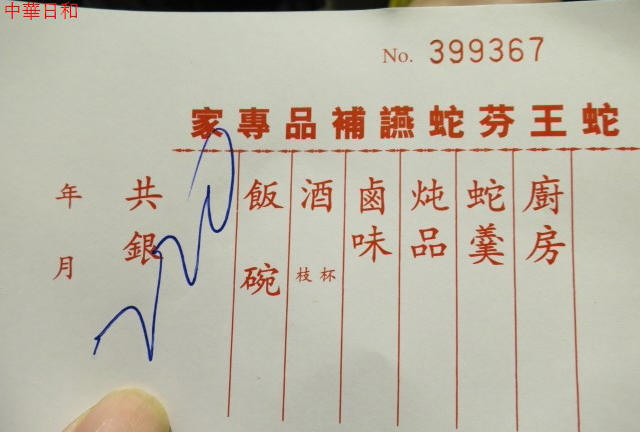 中華日和
No. 399367
蛇王芬蛇讌補品專家
廚房
蛇羹
炖品
鹵味
酒 杯 枝
飯 碗
共銀
220
年 月